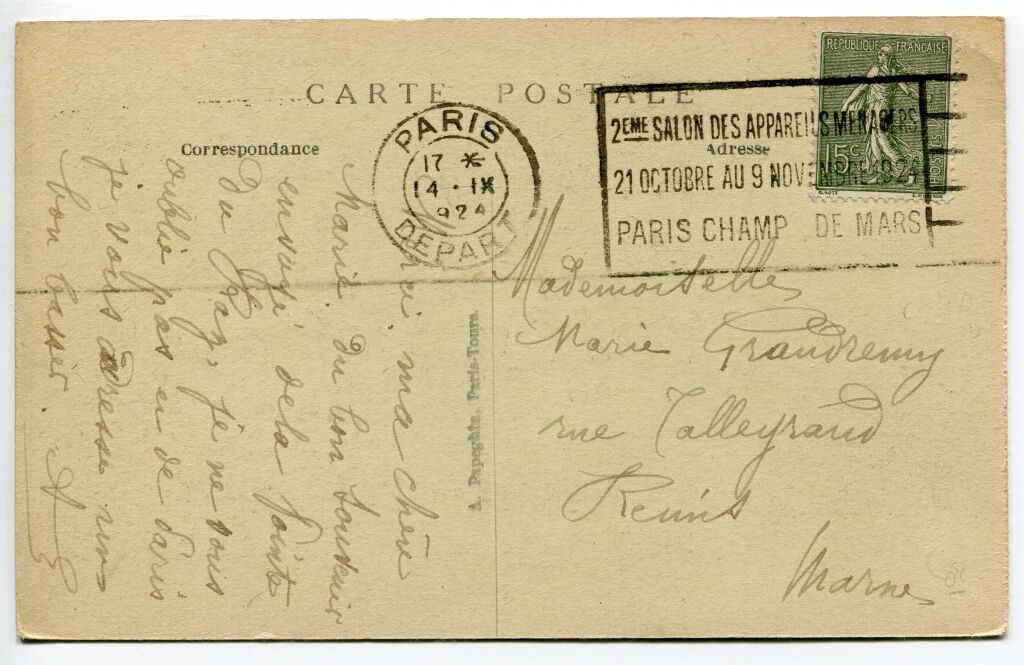 CARTE POSTALE
Correspondance
Adresse
PARIS
17 *
14 · IX
924
DEPART
2EME SALON DES APPAREILS MENAGERS
21 OCTOBRE AU 9 NOVEMBRE 1924
PARIS CHAMP DE MARS
REPUBLIQUE FRANÇAISE
15c
POSTES
ma chère
Marie du bon souvenir
envoyé de la Pointe
Du Raz, je ne vous
oublie pas et de Paris
je vous adresse un
bon baiser. A
A. Papeghin, Paris-Tours.
Mademoiselle
Marie Grandremy
rue Talleyrand
Reims
Marne